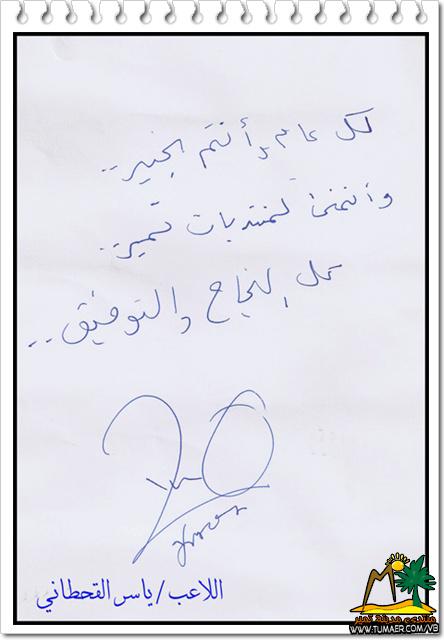 لكل عام وأنتم بخير..
وأتمنى لمنتديات تمير..
كل النجاح والتوفيق..
اللاعب/ياسر القحطاني
منتدى مدينة تمير
WWW.TUMAER.COM/VB